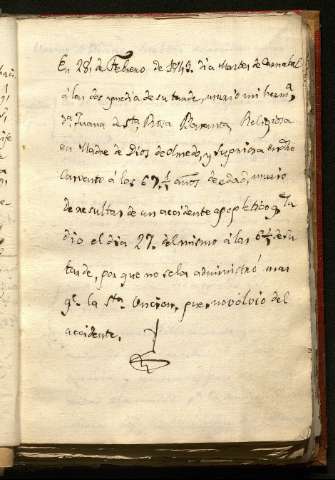 En 28 de Febrero de 1843. dia Martes de Carnabal
á las dos y media de su tarde, murió mi herm.ª
D.ª Juana de S.ta Rosa Religiosa
en Madre de Dios de Olmedo, y Superiora en dho
Convento á los 67 ½ años de edad, murio
de resultas de un accidente apopletico q.e la
dio el dia 27. del mismo á las 6 ½ de su
tarde, por que no se la administró mas
q.e la S.ta Uncion, pues no volvio del
accidente.